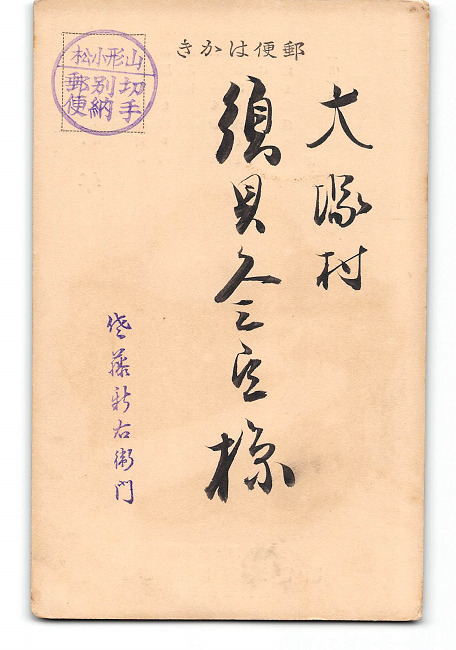 郵便はかき
山形小松
切手
別納
郵便
大塚村
須貝 様
藤新右衛門